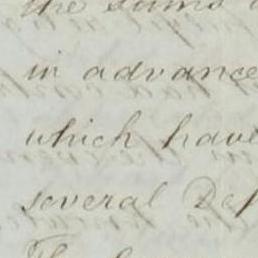 the sums
in advance
which have
several Dep